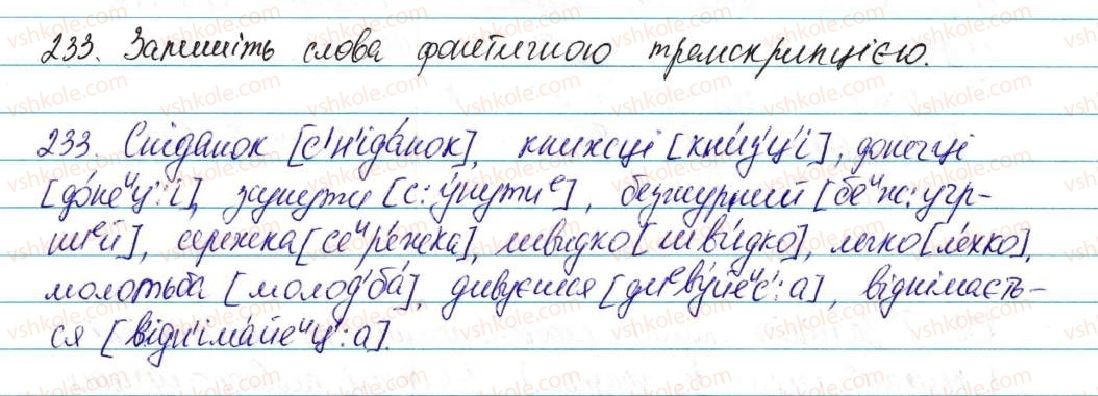 233. Запишіть слова фонетичною транскрипцією.
233. Сніданок [с'н'іда́нок], книжці [кни́з'ц'і], дочці
[до́не^и ц':і], зсунути [с:у́нути^е], безжурний [бе^и ж:у́р-
ни^е й], сережка [се^и ре́жка], швидко [шви́дко], легко [ле́хко],
молотьба [молод'ба́], дивуєшся [ди^е ву́йе^и с':а], віднімаєть-
ся [відн'іма́йе^и ц':а].